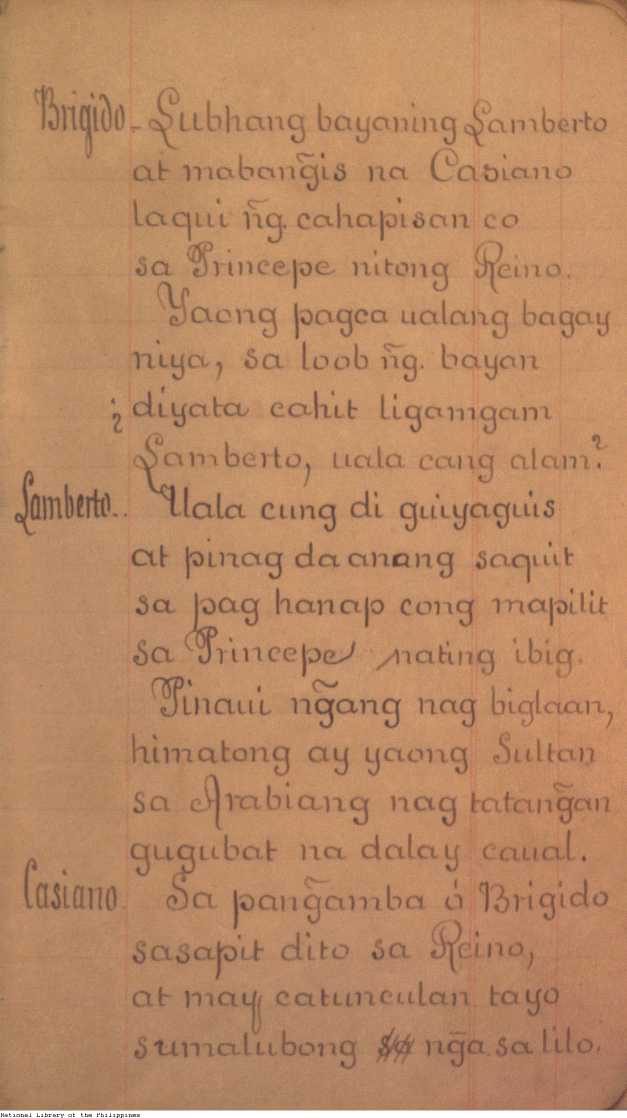 Brigido - Lubhang bayaning Lamberto
at mabang̃is na Casiano
laqui ñg. cahapisan co
sa Princepe nitong Reino.
Yaong pagca ualang bagay
niya, sa loob ñg. bayan
¿diyata cahit ligamgam
Lamberto, uala cang alam?
Lamberto.. Uala cung di guiyaguis
at pinag daanang saquit
sa pag hanap cong mapilit
sa Princepe nating ibig.
Pinaui ng̃ang nag biglaan,
himatong ay yaong Sultan
sa Arabiang nag tatang̃an
gugubat na dalay caual.
Casiano. Sa pang̃amba ó Brigido
sasapit dito sa Reino,
at may catunculan tayo
sumalubong ng̃a sa lilo.
National Library of the Philippines